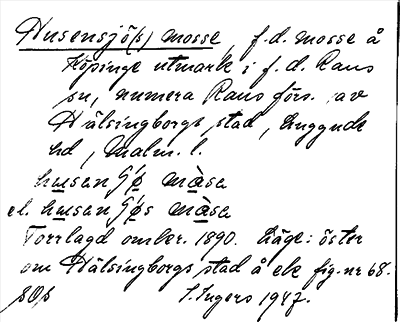 Husensjö(s) mosse, f.d. mosse å
Köpinge utmark i f.d. Raus
sn, numera Raus förs. av
Hälsingborgs stad, Luggude
hd, Malm. l.
husan
el. husan
Torrlagd omkr. 1890. Läge: öster
om Hälsingborgs stad å ek fig. nr 68.
I. Ingers 1947.